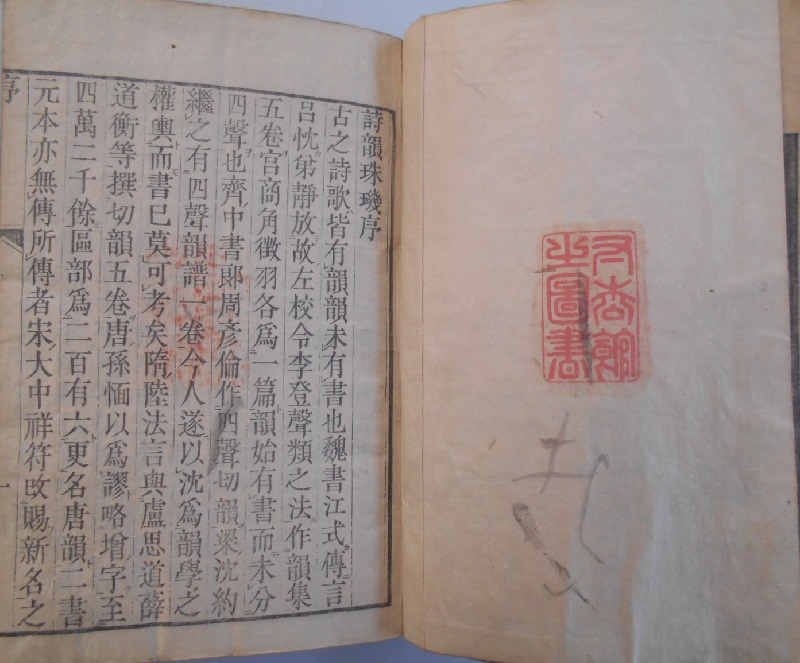 杏館
之圖書
詩韻珠璣序
古之詩歌皆有韻韻未有書也魏書江式傳言
呂忱弟靜放故左校令李登聲類之法作韻集
五卷宮商角徵羽各爲一篇韻始有書而未分
四聲也齊中書郞周彥倫作四聲切韻梁沈約
繼之有四聲韻譜一卷今人遂以沈爲韻學之
權輿而書已莫可考矣隋陸法言與盧思道薛
道衡等撰切韻五卷唐孫愐以爲謬略增字至
四萬二千餘區部爲二百有六更名唐韻二書
元本亦無傳所傳者宋大中祥符改賜新名之
序
一